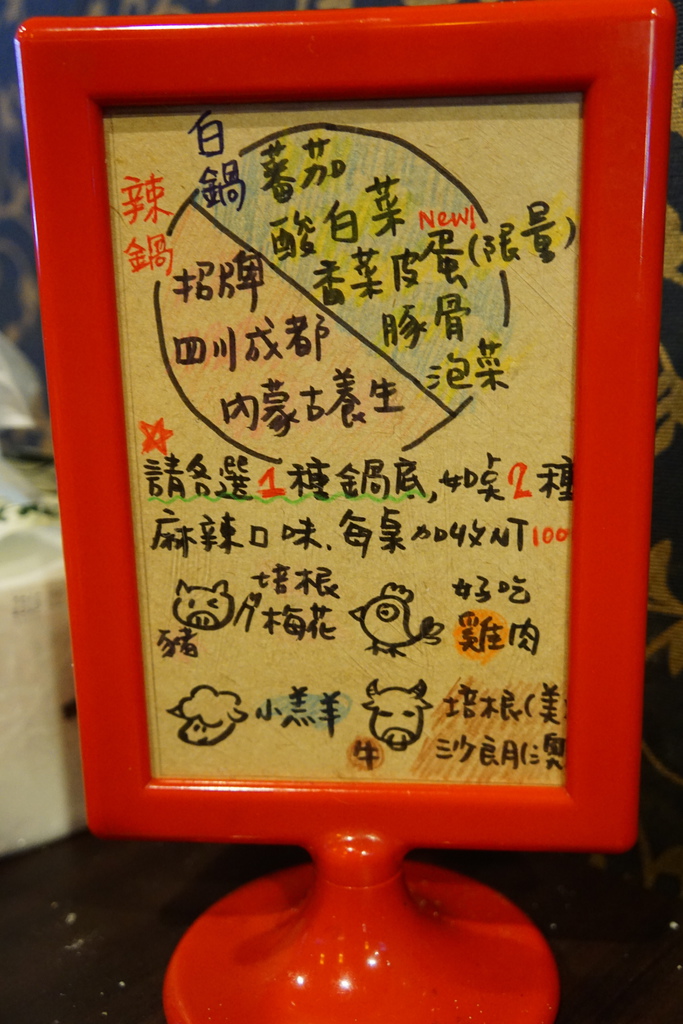 白鍋
辣鍋
蕃茄
酸白菜
New!
香菜皮蛋(限量)
豚骨
泡菜
招牌
四川成都
內蒙古養生
請各選1種鍋底,如桌2種
麻辣口味.每桌加收NT100
豬
培根
梅花
好吃
雞肉
小羔羊
牛
培根(美
沙朗(澳